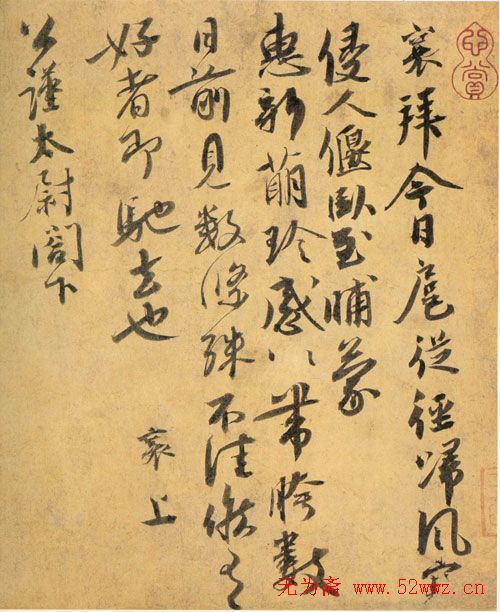 襄拜今日扈從徑歸風寒
侵人偃臥至晡蒙
惠新萌珍感〻帶胯數
日前見數條殊不佳候有
好者即馳去也
襄上
公謹太尉閣下
无为斋 www.52wwz.cn